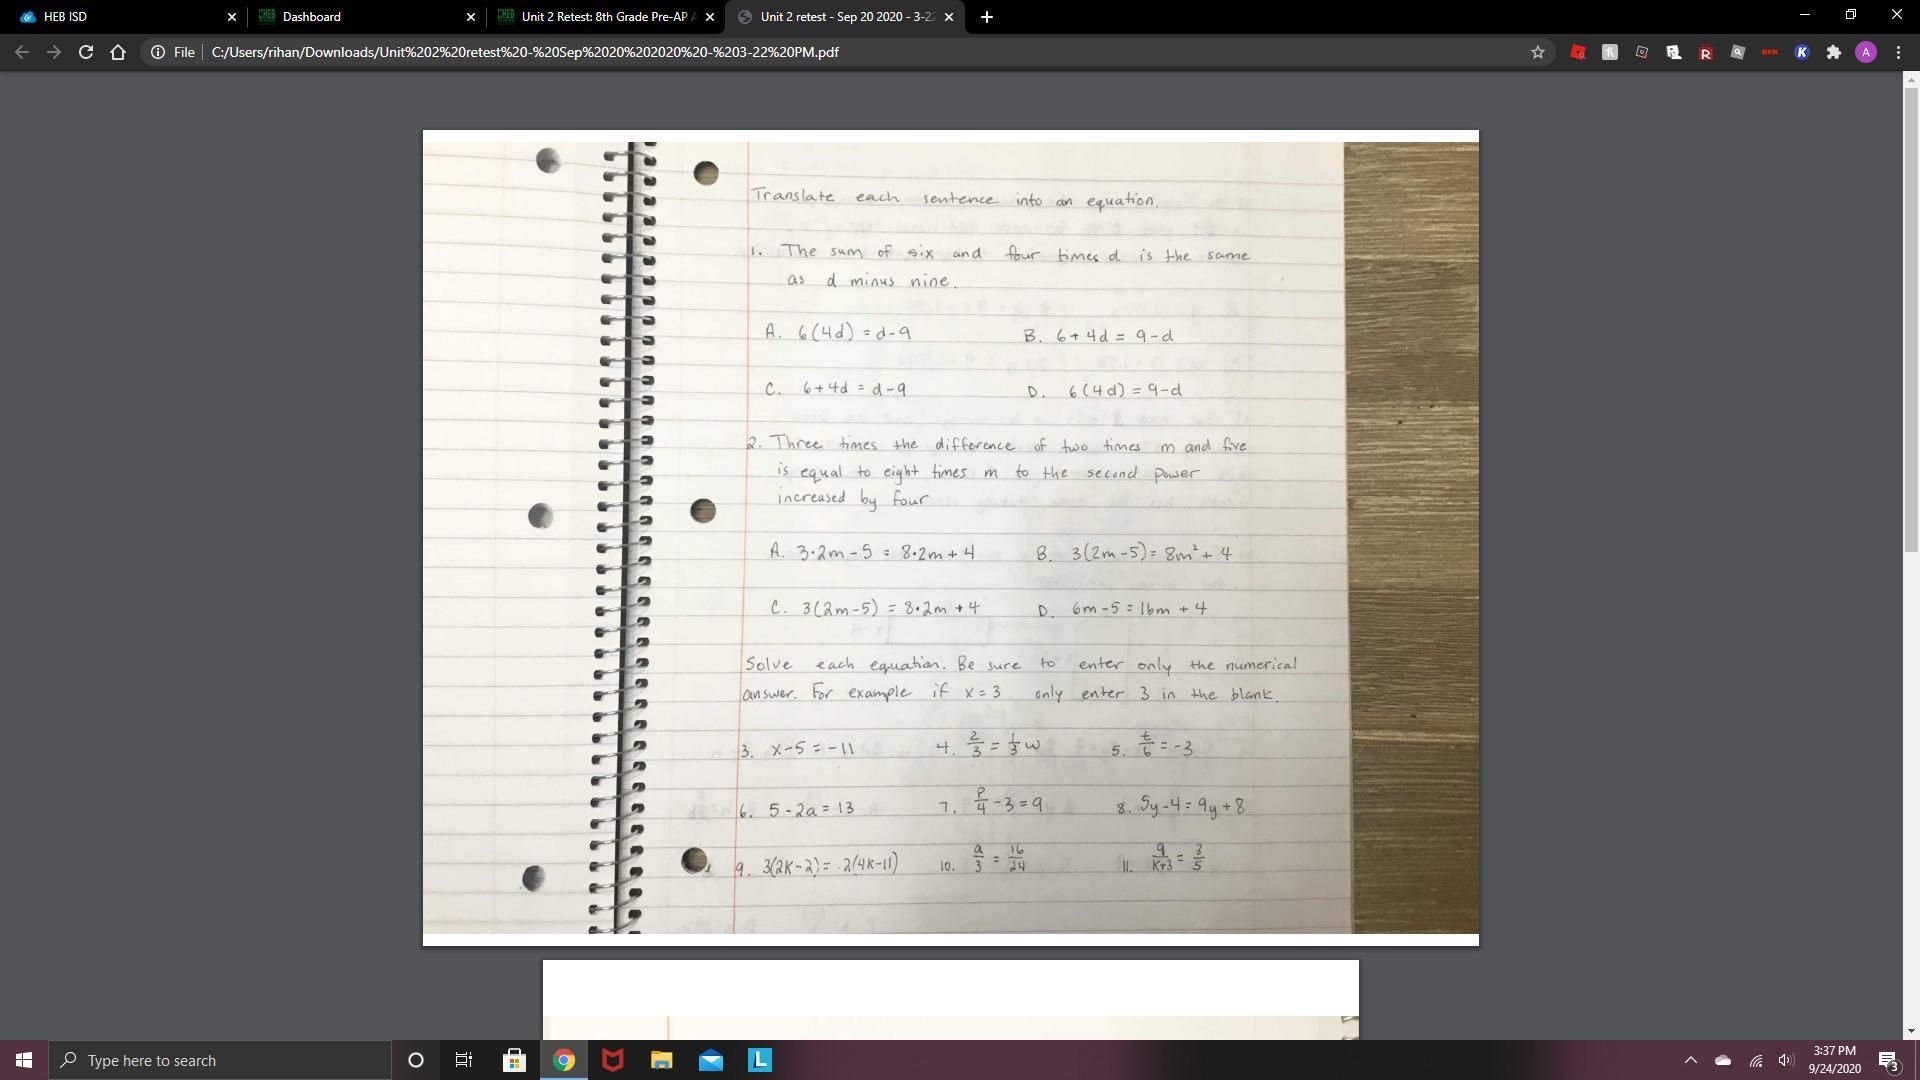 HEB ISD
Dashboard
Unit 2 Retest: 8th Grade Pre-AP A
Unit 2 retest - Sep 20 2020 - 3-22
File
C:/Users/rihan/Downloads/Unit%202%20retest%20-%20Sep%2020%202020%20-%203-22%20PM.pdf
Translate each sentence into an equation.
1. The sum of six and four times d is the same
as d minus nine.
A. 6(4d) = d-9
B. 6+4d = 9-d
C. 6+4d = d-9
D. 6(4d) = 9-d
2. Three times the difference of two times m and five
is equal to eight times m to the second power
increased by four
A. 3·2m-5 = 8·2m+4
B. 3(2m-5) = 8m²+4
C. 3(2m-5) = 8·2m+4
D. 6m-5 = 16m+4
Solve each equation. Be sure to enter only the numerical
answer. For example if x=3 only enter 3 in the blank.
3. x-5 = -11 4. 2/3 = 1/3 w 5. t/6 = -3
6. 5-2a = 13 7. P/4 -3 = 9 8. 5y-4 = 9y+8
9. 3(2K-2) = 2(4K-11) 10. a/3 = 16/24 11. 9/K+3 = 3/5
Type here to search
3:37 PM
9/24/2020
3